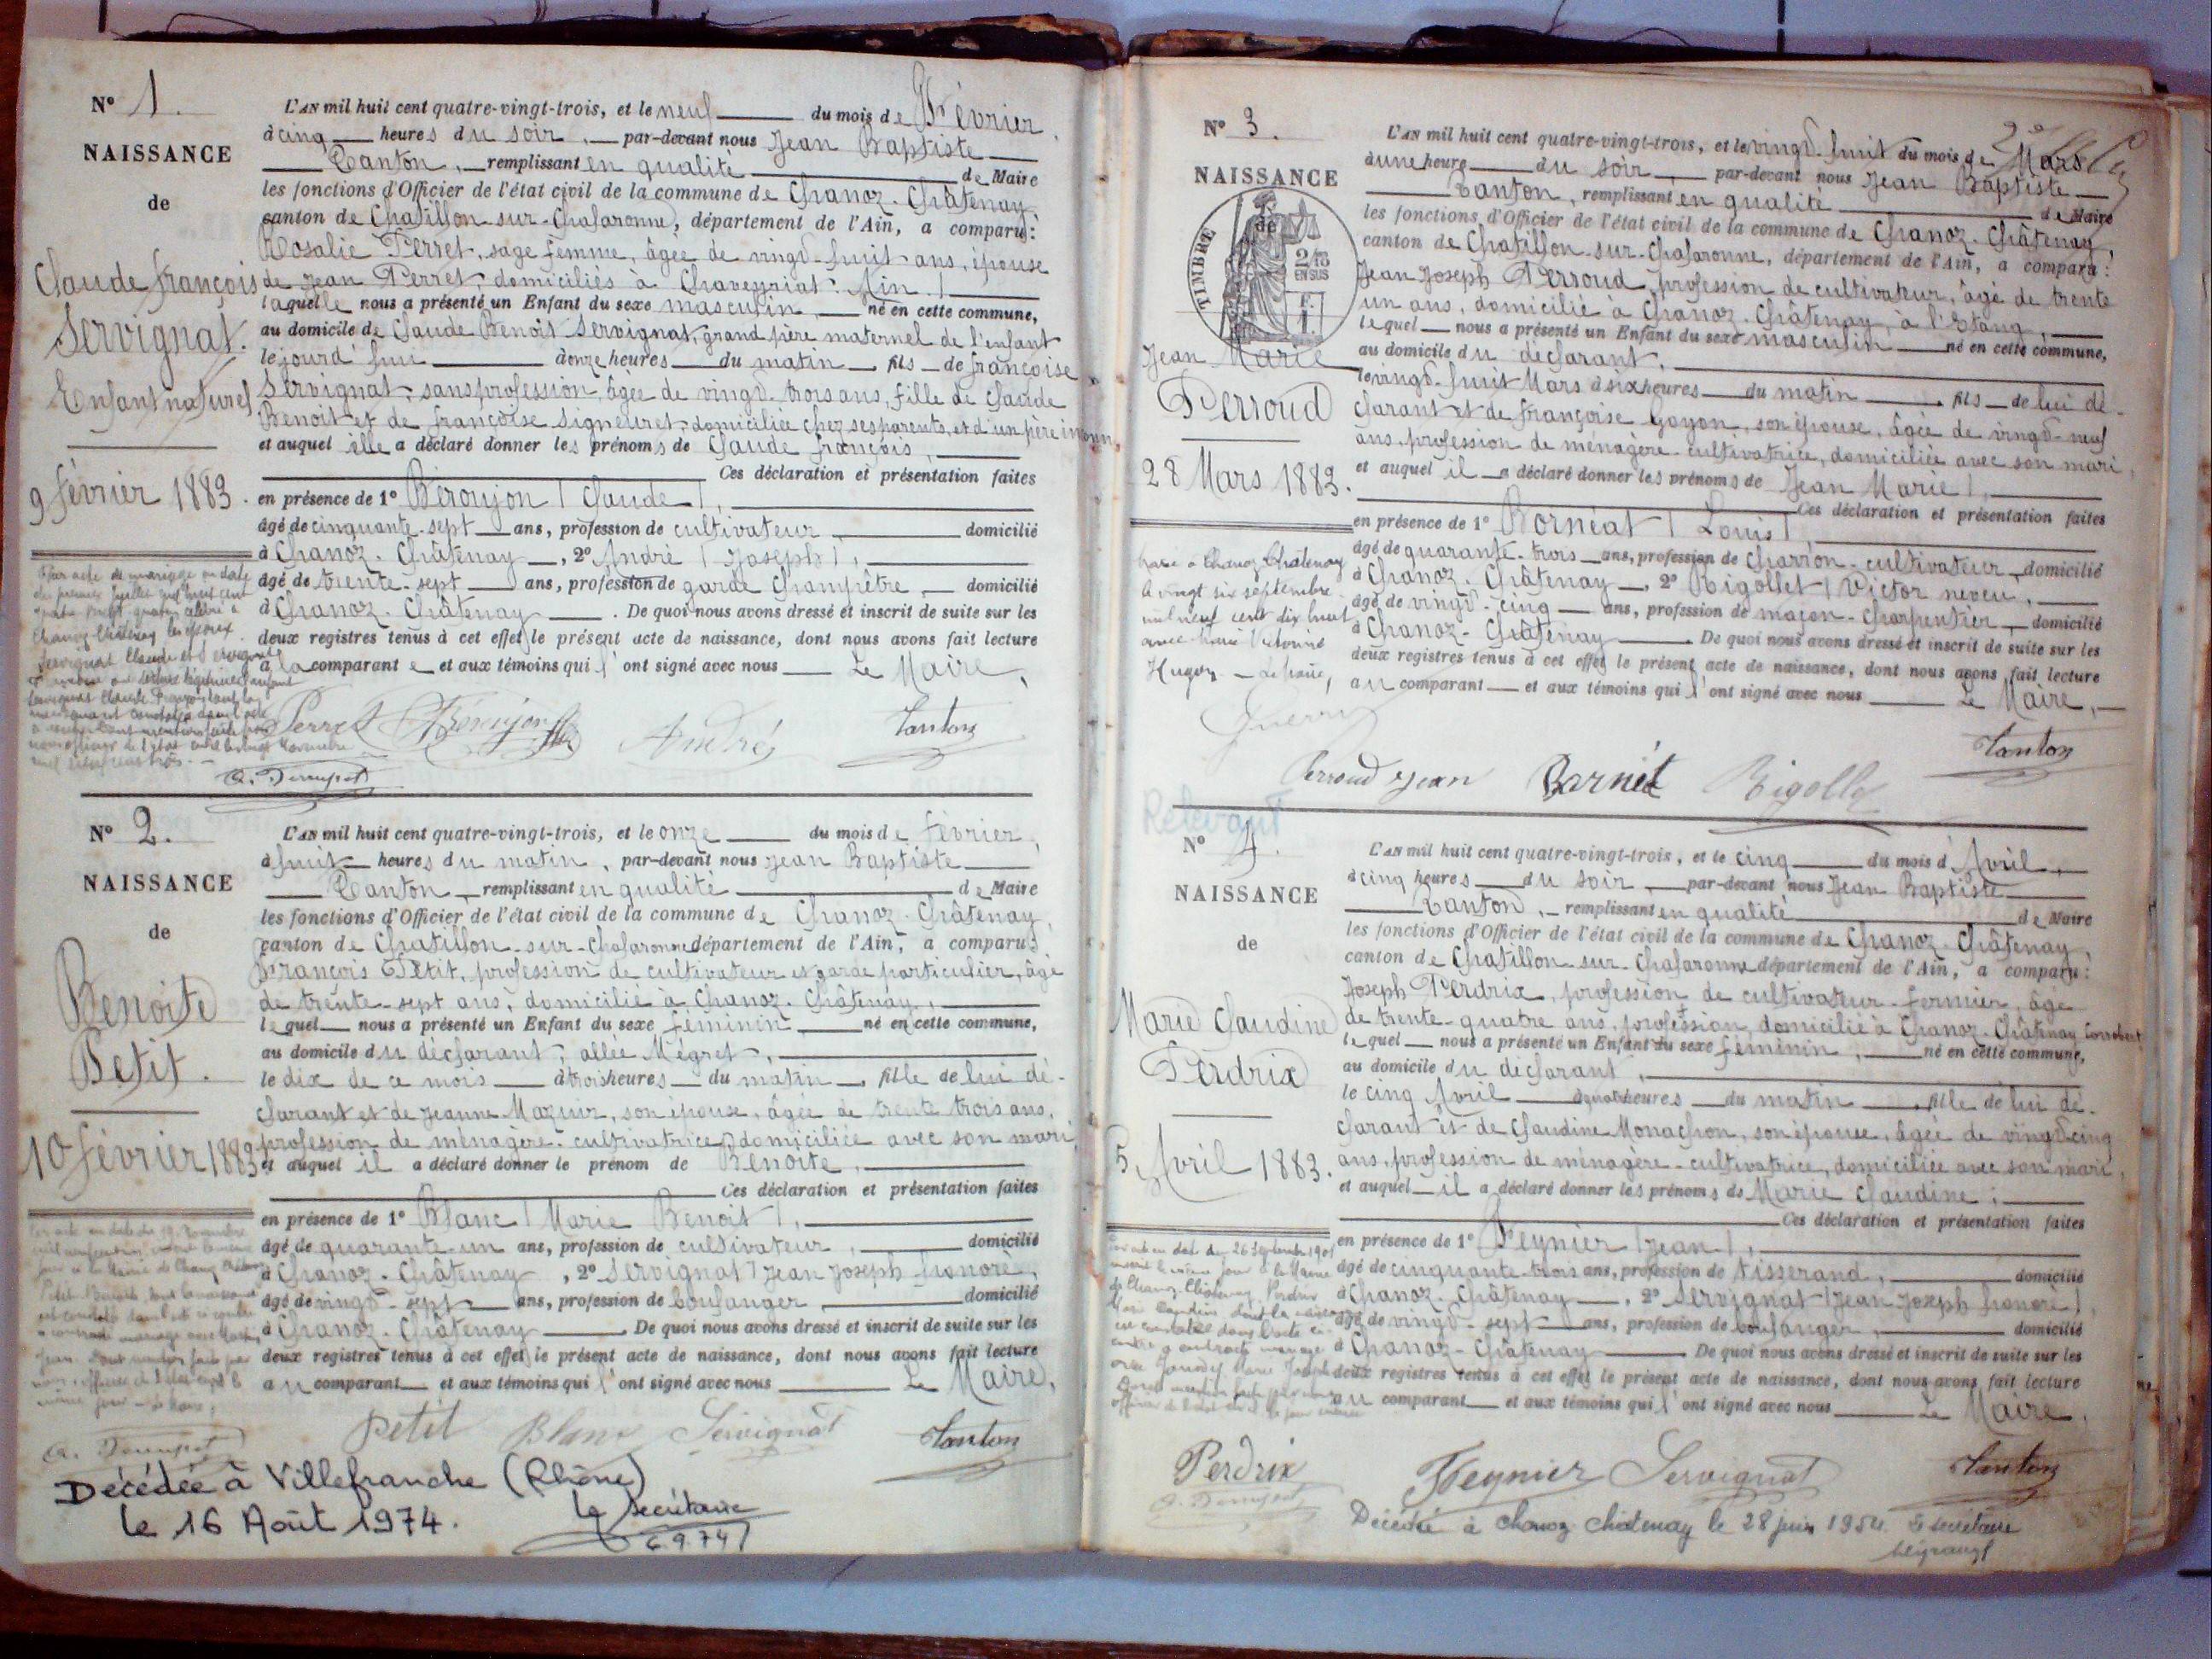 N° 1.
NAISSANCE
de
Claude françois
Servignat.
Enfant naturel
9 février 1883.
L'AN mil huit cent quatre-vingt-trois, et le neuf du mois de Février,
à cinq heures du soir, par-devant nous Jean Baptiste
Tanton, remplissant en qualité de Maire
les fonctions d'Officier de l'état civil de la commune de Chanoz-Châtenay
canton de Chatillon-sur-Chalaronne, département de l'Ain, a comparu:
Rosalie Perret, sage femme, âgée de vingt-huit ans, épouse
de Jean Perret, domiciliés à Chaveyriat (Ain)
laquelle nous a présenté un Enfant du sexe masculin, né en cette commune,
au domicile de Claude Benoit Servignat, grand père maternel de l'enfant
le jourd'hui à onze heures du matin fils de françoise
Servignat, sans profession, âgée de vingt-trois ans, fille de Claude
Benoit et de françoise Signeuret, domiciliée chez ses parents, et d'un père inconnu,
et auquel elle a déclaré donner les prénoms de Claude françois,
Ces déclaration et présentation faites
en présence de 1° Béroujon (Claude),
âgé de cinquante-sept ans, profession de cultivateur, domicilié
à Chanoz-Châtenay, 2° André (Joseph),
âgé de trente-sept ans, profession de garde champêtre, domicilié
à Chanoz-Châtenay. De quoi nous avons dressé et inscrit de suite sur les
deux registres tenus à cet effet le présent acte de naissance, dont nous avons fait lecture
à la comparante et aux témoins qui l'ont signé avec nous Le Maire,
Par acte de mariage en date
du premier juillet mil huit cent
Chanoz-Châtenay les époux
Servignat Claude
Perret Béroujon André Tanton
N° 2.
NAISSANCE
de
Benoite
Petit.
10 février 1883.
L'AN mil huit cent quatre-vingt-trois, et le onze du mois de février,
à huit heures du matin, par-devant nous Jean Baptiste
Tanton, remplissant en qualité de Maire
les fonctions d'Officier de l'état civil de la commune de Chanoz-Châtenay,
canton de Chatillon-sur-Chalaronne département de l'Ain, a comparu:
François Petit, profession de cultivateur et garde particulier, âgé
de trente-sept ans, domicilié à Chanoz-Châtenay,
lequel nous a présenté un Enfant du sexe féminin né en cette commune,
au domicile du déclarant, allée Mégret,
le dix de ce mois à trois heures du matin, fille de lui dé-
clarant et de Jeanne Mazuir, son épouse, âgée de trente trois ans,
profession de ménagère-cultivatrice, domiciliée avec son mari,
et auquel il a déclaré donner le prénom de Benoite,
Ces déclaration et présentation faites
en présence de 1° Blanc (Marie Benoit),
âgé de quarante-un ans, profession de cultivateur, domicilié
à Chanoz-Châtenay, 2° Servignat (Jean Joseph honoré,
âgé de vingt-sept ans, profession de boulanger, domicilié
à Chanoz-Châtenay. De quoi nous avons dressé et inscrit de suite sur les
deux registres tenus à cet effet le présent acte de naissance, dont nous avons fait lecture
au comparant et aux témoins qui l'ont signé avec nous Le Maire,
Petit Blanc Servignat Tanton
Décédée à Villefranche (Rhône)
le 16 Août 1974. Le secrétaire
6.9.74
N° 3.
NAISSANCE
de
TIMBRE
2/10
EN SUS
Jean Marie
Perroud
28 Mars 1883.
L'AN mil huit cent quatre-vingt-trois, et le vingt-huit du mois de Mars
à une heure du soir, par-devant nous Jean Baptiste
Tanton, remplissant en qualité de Maire
les fonctions d'Officier de l'état civil de la commune de Chanoz-Châtenay,
canton de Chatillon-sur-Chalaronne, département de l'Ain, a comparu:
Jean Joseph Perroud, profession de cultivateur, âgé de trente
un ans, domicilié à Chanoz-Châtenay, à l'Etang,
lequel nous a présenté un Enfant du sexe masculin né en cette commune,
au domicile du déclarant,
le vingt-huit Mars à six heures du matin, fils de lui dé-
clarant et de françoise Goyon, son épouse, âgée de vingt-neuf
ans, profession de ménagère-cultivatrice, domiciliée avec son mari,
et auquel il a déclaré donner les prénoms de Jean Marie,
Ces déclaration et présentation faites
en présence de 1° Bornéat (Louis),
âgé de quarante-trois ans, profession de Charron-cultivateur, domicilié
à Chanoz-Châtenay, 2° Rigollet (Victor neveu,
âgé de vingt-cinq ans, profession de maçon-Charpentier, domicilié
à Chanoz-Châtenay. De quoi nous avons dressé et inscrit de suite sur les
deux registres tenus à cet effet le présent acte de naissance, dont nous avons fait lecture
au comparant et aux témoins qui l'ont signé avec nous Le Maire,
Marié à Chanoz Châtenay
le vingt six septembre
mil neuf cent dix huit
avec Marie Victorine
Hugon Le Maire,
Perroud Jean Tanton
Relevant
N° 4.
NAISSANCE
de
Marie Claudine
Perdrix
5 Avril 1883.
L'AN mil huit cent quatre-vingt-trois, et le cinq du mois d'Avril,
à cinq heures du soir, par-devant nous Jean Baptiste
Tanton, remplissant en qualité de Maire
les fonctions d'Officier de l'état civil de la commune de Chanoz-Châtenay,
canton de Chatillon-sur-Chalaronne département de l'Ain, a comparu:
Joseph Perdrix, profession de cultivateur-fermier, âgé
de trente-quatre ans, profession, domicilié à Chanoz-Châtenay
lequel nous a présenté un Enfant du sexe féminin, né en cette commune,
au domicile du déclarant,
le cinq Avril à quatre heures du matin, fille de lui dé-
clarant et de Claudine Monachon, son épouse, âgée de vingt-cinq
ans, profession de ménagère-cultivatrice, domiciliée avec son mari,
et auquel il a déclaré donner les prénoms de Marie Claudine;
Ces déclaration et présentation faites
en présence de 1° Peynier (Jean),
âgé de cinquante-trois ans, profession de tisserand, domicilié
à Chanoz-Châtenay, 2° Servignat (Jean Joseph honoré),
âgé de vingt-sept ans, profession de boulanger, domicilié
à Chanoz-Châtenay. De quoi nous avons dressé et inscrit de suite sur les
deux registres tenus à cet effet le présent acte de naissance, dont nous avons fait lecture
au comparant et aux témoins qui l'ont signé avec nous Le Maire,
Perdrix Peynier Servignat Tanton
Décédée à Chanoz Châtenay le 28 juin 1954. Le secrétaire